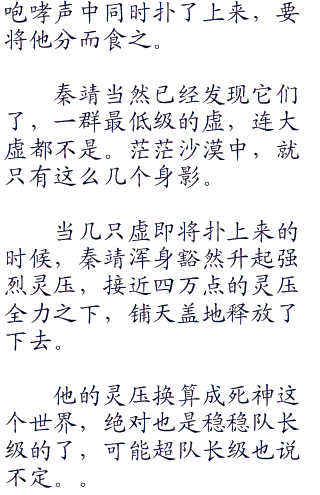 咆哮声中同时扑了上来，要
将他分而食之。
秦靖当然已经发现它们
了，一群最低级的虚，连大
虚都不是。茫茫沙漠中，就
只有这么几个身影。
当几只虚即将扑上来的
时候，秦靖浑身豁然升起强
烈灵压，接近四万点的灵压
全力之下，铺天盖地释放了
下去。
他的灵压换算成死神这
个世界，绝对也是稳稳队长
级的了，可能超队长级也说
不定。。